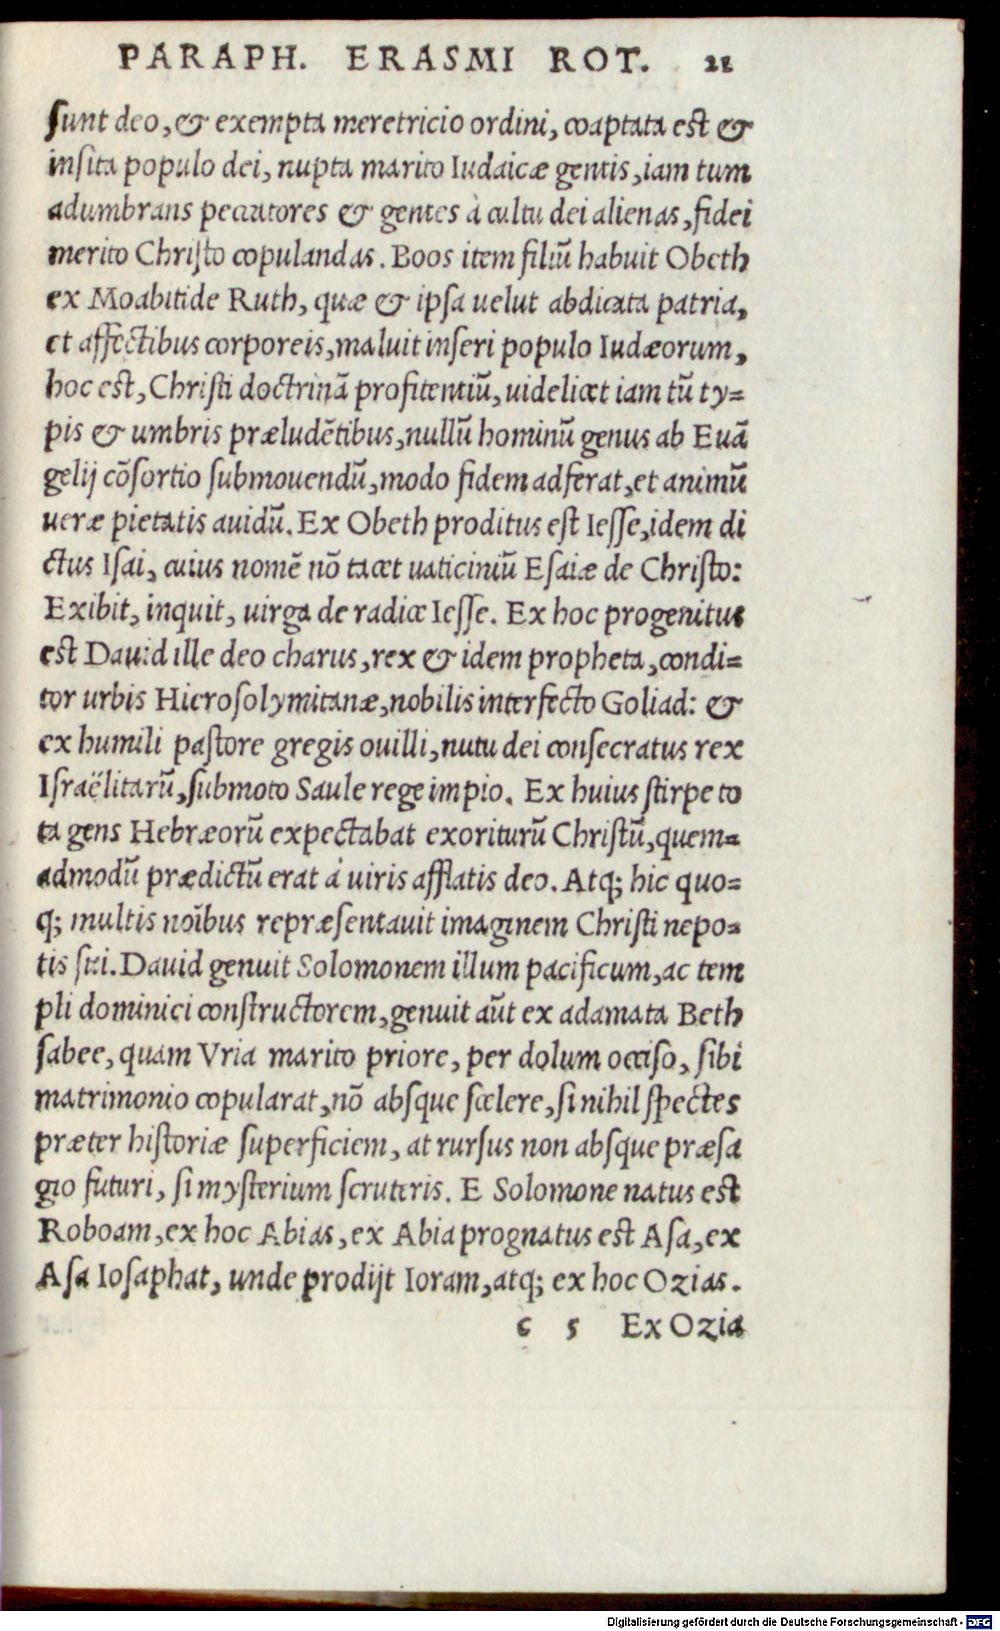 PARAPH. ERASMI ROT. 21
sunt deo, & exempta meretricio ordini, coaptata est &
insita populo dei, nupta marito Iudaicæ gentis, iam tum
adumbrans peccatores & gentes à cultu dei alienas, fidei
merito Christo copulandas. Boos item filiū habuit Obeth
ex Moabitide Ruth, quæ & ipsa uelut abdicata patria,
et affectibus corporeis, maluit inseri populo Iudæorum,
hoc est, Christi doctrinā profitentiū, uidelicet iam tū ty=
pis & umbris præludētibus, nullū hominū genus ab Euā
gelij cōsortio submouendū, modo fidem adferat, et animū
ueræ pietatis auidū. Ex Obeth proditus est Iesse, idem di
ctus Isai, cuius nomē nō tacet uaticiniū Esaiæ de Christo:
Exibit, inquit, uirga de radice Iesse. Ex hoc progenitus
est Dauid ille deo charus, rex & idem propheta, condi=
tor urbis Hierosolymitanæ, nobilis interfecto Goliad: &
ex humili pastore gregis ouilli, nutu dei consecratus rex
Israëlitarū, submoto Saule rege impio. Ex huius stirpe to
ta gens Hebræorū expectabat exoriturū Christū, quem=
admodū prædictū erat à uiris afflatis deo. Atq; hic quo=
q; multis noībus repræsentauit imaginem Christi nepo=
tis sui. Dauid genuit Solomonem illum pacificum, ac tem
pli dominici constructorem, genuit aūt ex adamata Beth
sabee, quam Vria marito priore, per dolum occiso, sibi
matrimonio copularat, nō absque scelere, si nihil spectes
præter historiæ superficiem, at rursus non absque præsa
gio futuri, si mysterium scruteris. E Solomone natus est
Roboam, ex hoc Abias, ex Abia prognatus est Asa, ex
Asa Iosaphat, unde prodijt Ioram, atq; ex hoc Ozias.
c 5 Ex Ozia
Digitalisierung gefördert durch die Deutsche Forschungsgemeinschaft - DFG